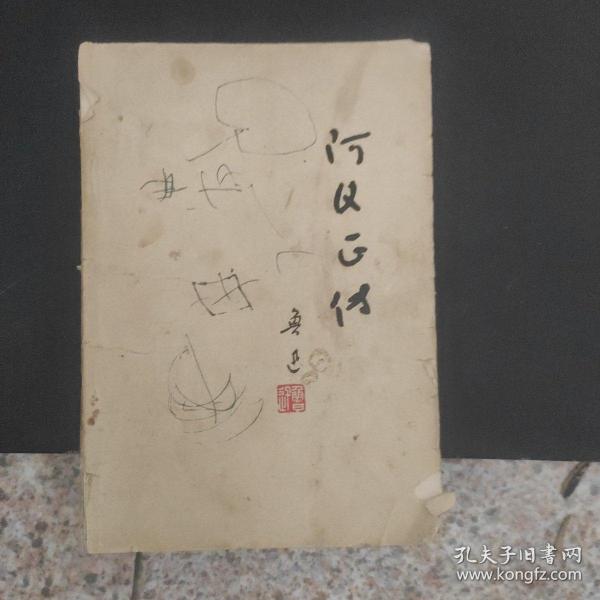 阿Q正传
鲁迅
鲁迅
孔夫子旧书网
www.kongfz.com